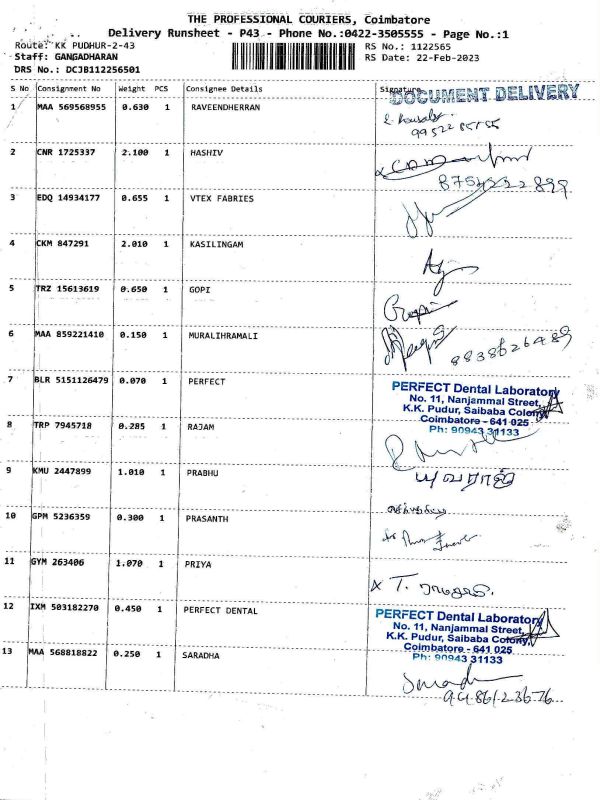 THE PROFESSIONAL COURIERS, Coimbatore
Delivery Runsheet - P43 - Phone No.:0422-3505555 - Page No.:1
Route: KK PUDHUR-2-43 RS No.: 1122565
Staff: GANGADHARAN RS Date: 22-Feb-2023
DRS No.: DCJB112256501
S No Consignment No Weight PCS Consignee Details Signature
DOCUMENT DELIVERY
1 MAA 569568955 0.630 1 RAVEENDHERRAN
2 CNR 1725337 2.100 1 HASHIV
3 EDQ 14934177 0.655 1 VTEX FABRIES
4 CKM 847291 2.010 1 KASILINGAM
5 TRZ 15613619 0.650 1 GOPI
6 MAA 859221410 0.150 1 MURALIHRAMALI
8838626489
7 BLR 5151126479 0.070 1 PERFECT
PERFECT Dental Laboratory
No. 11, Nanjammal Street,
K.K. Pudur, Saibaba Colony,
Coimbatore - 641 025
Ph: 90943 31133
8 TRP 7945718 0.285 1 RAJAM
9 KMU 2447899 1.010 1 PRABHU
யுவராஜ்
10 GPM 5236359 0.300 1 PRASANTH
11 GYM 263406 1.070 1 PRIYA
12 IXM 503182270 0.450 1 PERFECT DENTAL
PERFECT Dental Laboratory
No. 11, Nanjammal Street,
K.K. Pudur, Saibaba Colony,
Coimbatore - 641 025
Ph: 90943 31133
13 MAA 568818822 0.250 1 SARADHA